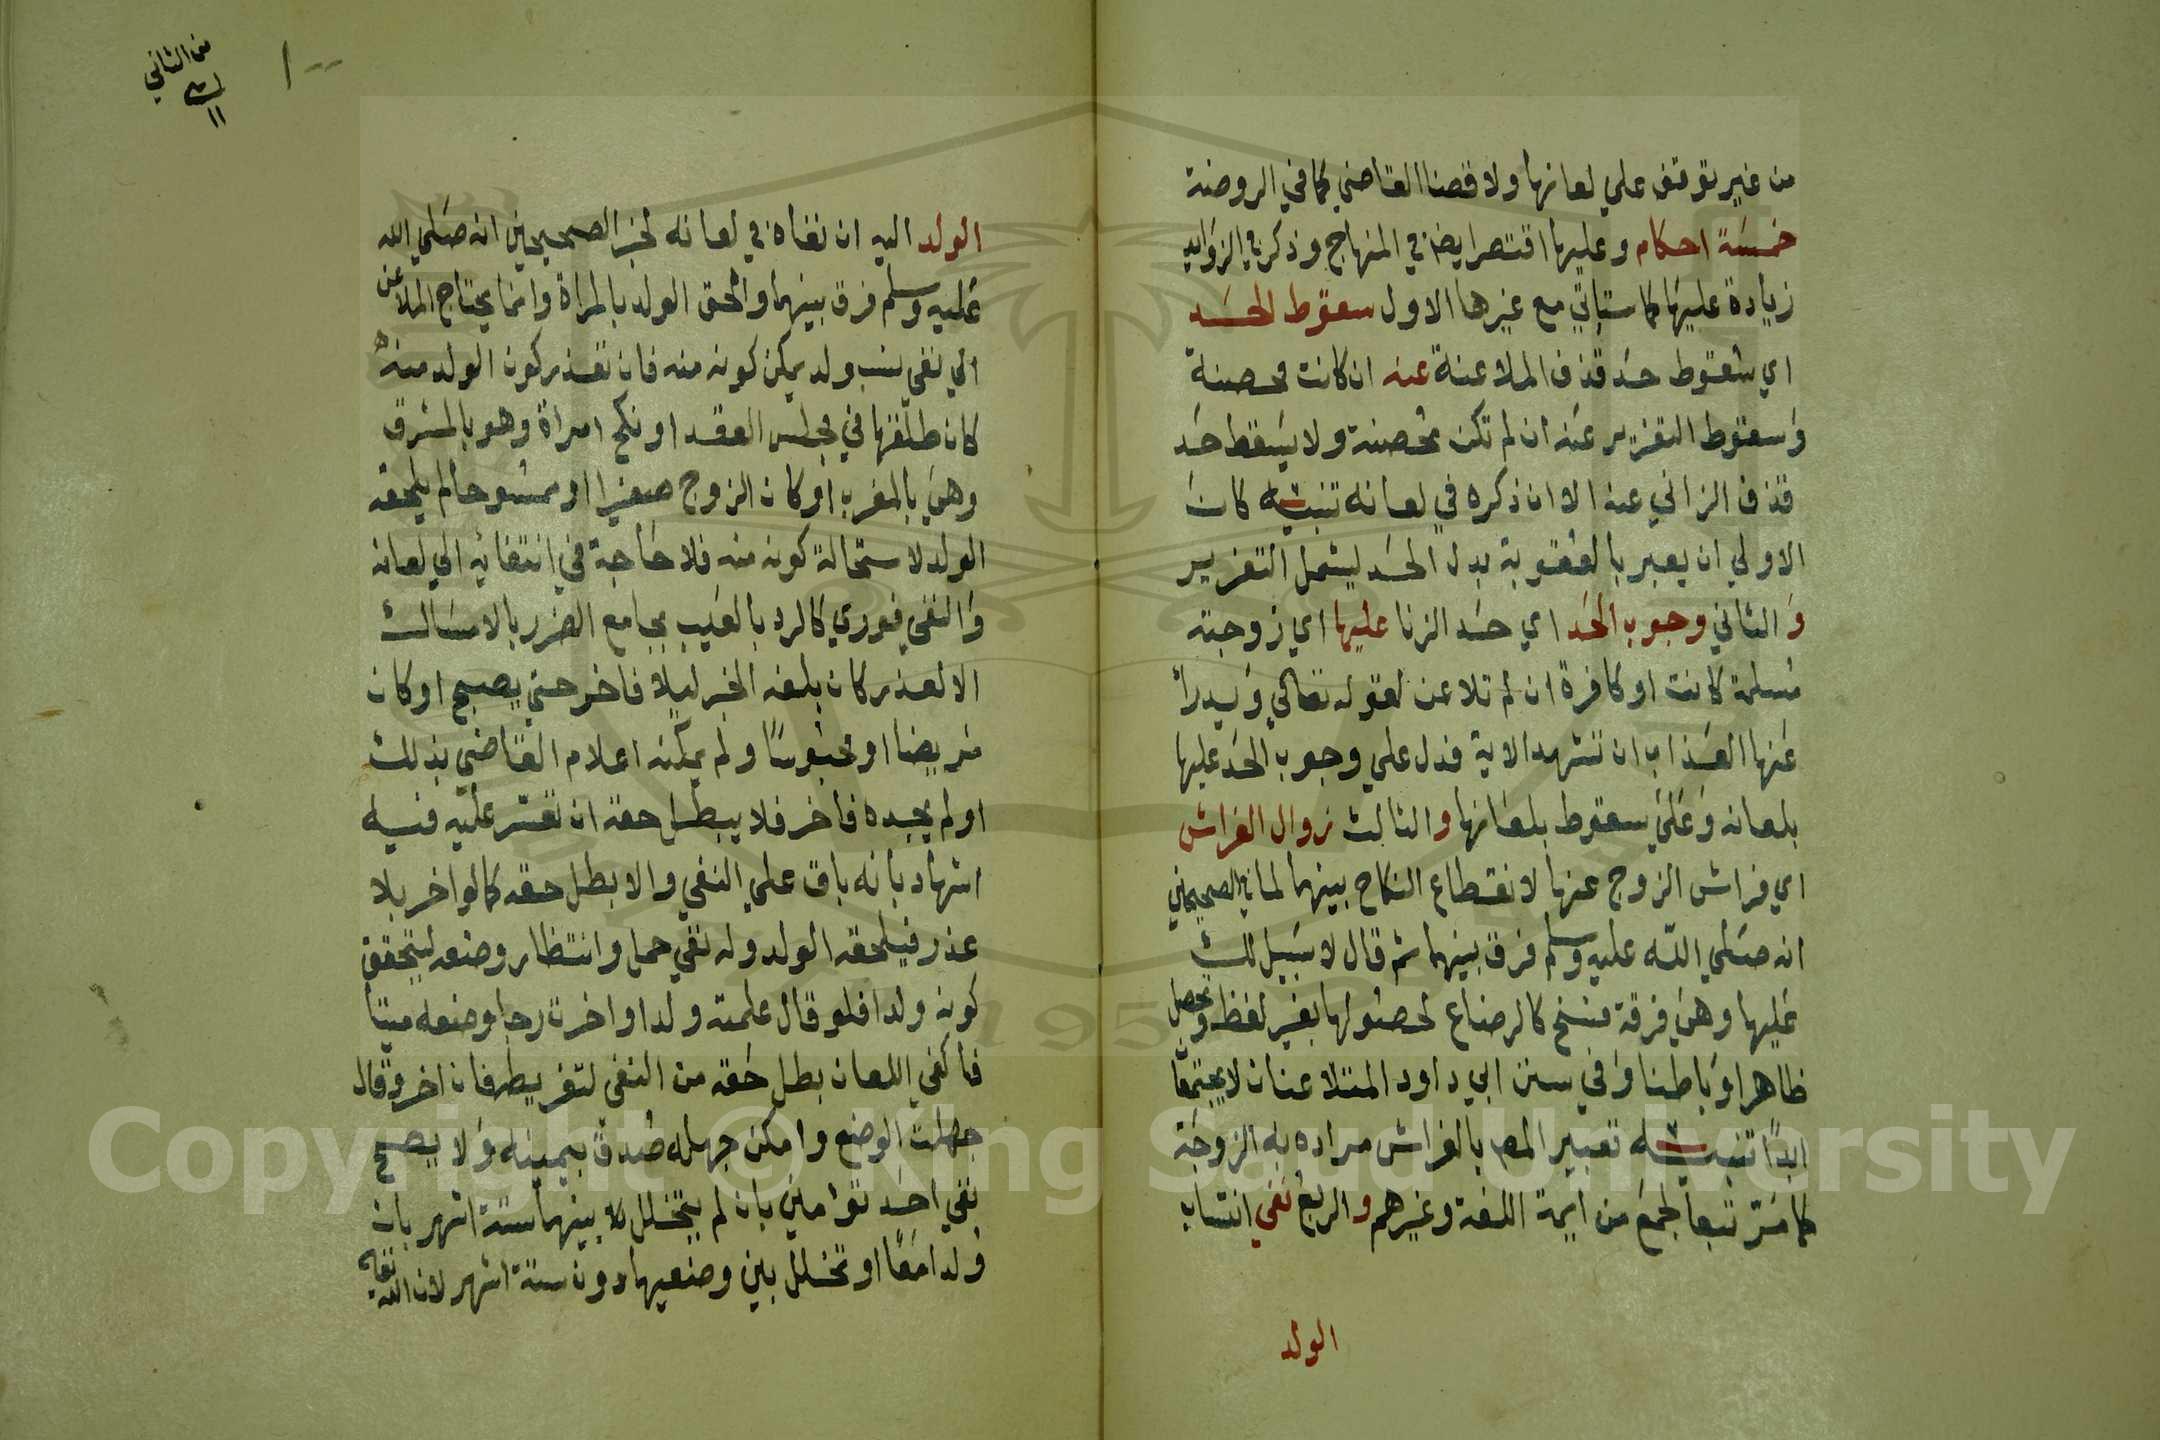 من غير توقف علي لعانها ولا قضا القاضي كما في الروضة
خمسة احكام وعليها اقتصر ايضا في المنهاج وذكر في الزوايد
زيادة عليها كما ستاتي مع غيرها الاول سقوط الحد
اي سقوط حد قذف الملاعنة عنه ان كانت محصنة
وسقوط التعزير عنه ان لم تكن محصنة ولا يسقط حد
قذف الزاني عنه الا ان ذكره في لعانه تنبيه كان
الاولي ان يعبر بالعقوبة بدل الحد ليشمل التعزير
و الثاني وجوب الحد اي حد الزنا عليها اي زوجته
مسلمة كانت او كافرة ان لم تلاعن لقوله تعالي ويدرأ
عنها العذاب ان تشهد الاية فدل علي وجوب الحد عليها
بلعانه وعلي سقوط بلعانها والثالث زوال الفراش
اي فراش الزوج عنها لانقطاع النكاح بينهما لما في الصحيحين
انه صلي الله عليه وسلم فرق بينهما ثم قال لا سبيل لك
عليها وهي فرقة فسخ كالرضاع لحصولها بغير لفظ وتحصل
ظاهرا وباطنا وفي سنن ابي داود المتلاعنان لا يجتمعا
ابدا تنبيه تعبير المص بالفراش مراده به الزوجة
كما مر تبعا لجمع من ايمة اللغة وغيرهم و الربع نفي انتساب
الولد
من الثاني
١١
الولد اليه ان نفاه في لعانه لخبر الصحيحين انه صلي الله
عليه وسلم فرق بينهما والحق الولد بالمراة وانما يحتاج الملاعن
الي نفي نسب ولد يمكن كونه منه فان تعذر كون الولد منه
كان طلقها في مجلس العقد او نكح امراة وهو بالمشرق
وهي بالمغرب او كان الزوج صغيرا او ممسوحا لم يلحقه
الولد لاستحالة كونه منه فلا حاجة في انتفائه الي لعانه
والنفي فوري كالرد بالعيب بجامع الضرر بالامساك
الا لعذر كان بلغه الخبر ليلا فاخر حتي يصبح او كان
مريضا او محبوسا ولم يمكنه اعلام القاضي بذلك
او لم يجده فاخر فلا يبطل حقه ان تعسر عليه فيه
اشهاد بانه باق علي النفي والا بطل حقه كما لو اخر بلا
عذر فيلحقه الولد وله نفي حمل وانتظار وضعه ليتحقق
كونه ولدا فلو قال علمته ولدا واخرت رجا وضعه ميتا
فاكفي اللعان بطل حقه من النفي لتفريطه فان اخر وقال
جهلت الوضع وامكن جهله صدق بيمينه ولا يصح
نفي احد توامين بان لم يتخلل بينهما ستة اشهر بان
ولدا معا او تخلل بين وضعيهما دون ستة اشهر لان الله
تعالي
Copyright © King Saud University